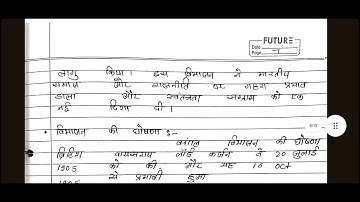 FUTURE
Date
Page 1
लागु किया। इस विभाजन ने भारतीय
समाज और राजनीति पर गहरा प्रभाव
डाला और स्वतंत्रता संग्राम को एक
नई दिशा दी।
• विभाजन की घोषणा :-
बंगाल विभाजन की घोषणा
ब्रिटिश वायसराय लॉर्ड कर्जन ने 20 जुलाई
1905 को की और यह 16 OCT
1905 से प्रभावी हुआ